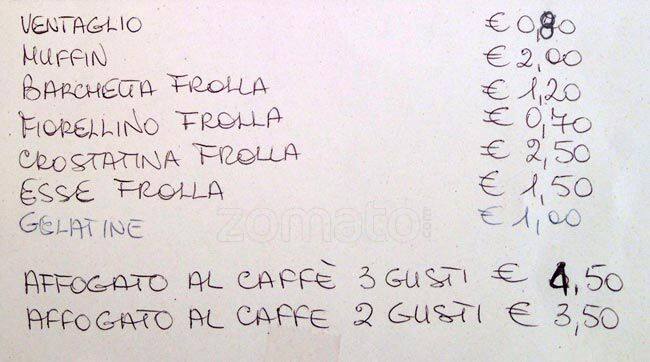 VENTAGLIO € 0,80
MUFFIN € 2,00
BARCHETTA FROLLA € 1,20
FIORELLINO FROLLA € 0,70
CROSTATINA FROLLA € 2,50
ESSE FROLLA € 1,50
GELATINE € 1,00
zomato.com
AFFOGATO AL CAFFÈ 3 GUSTI € 4,50
AFFOGATO AL CAFFE 2 GUSTI € 3,50